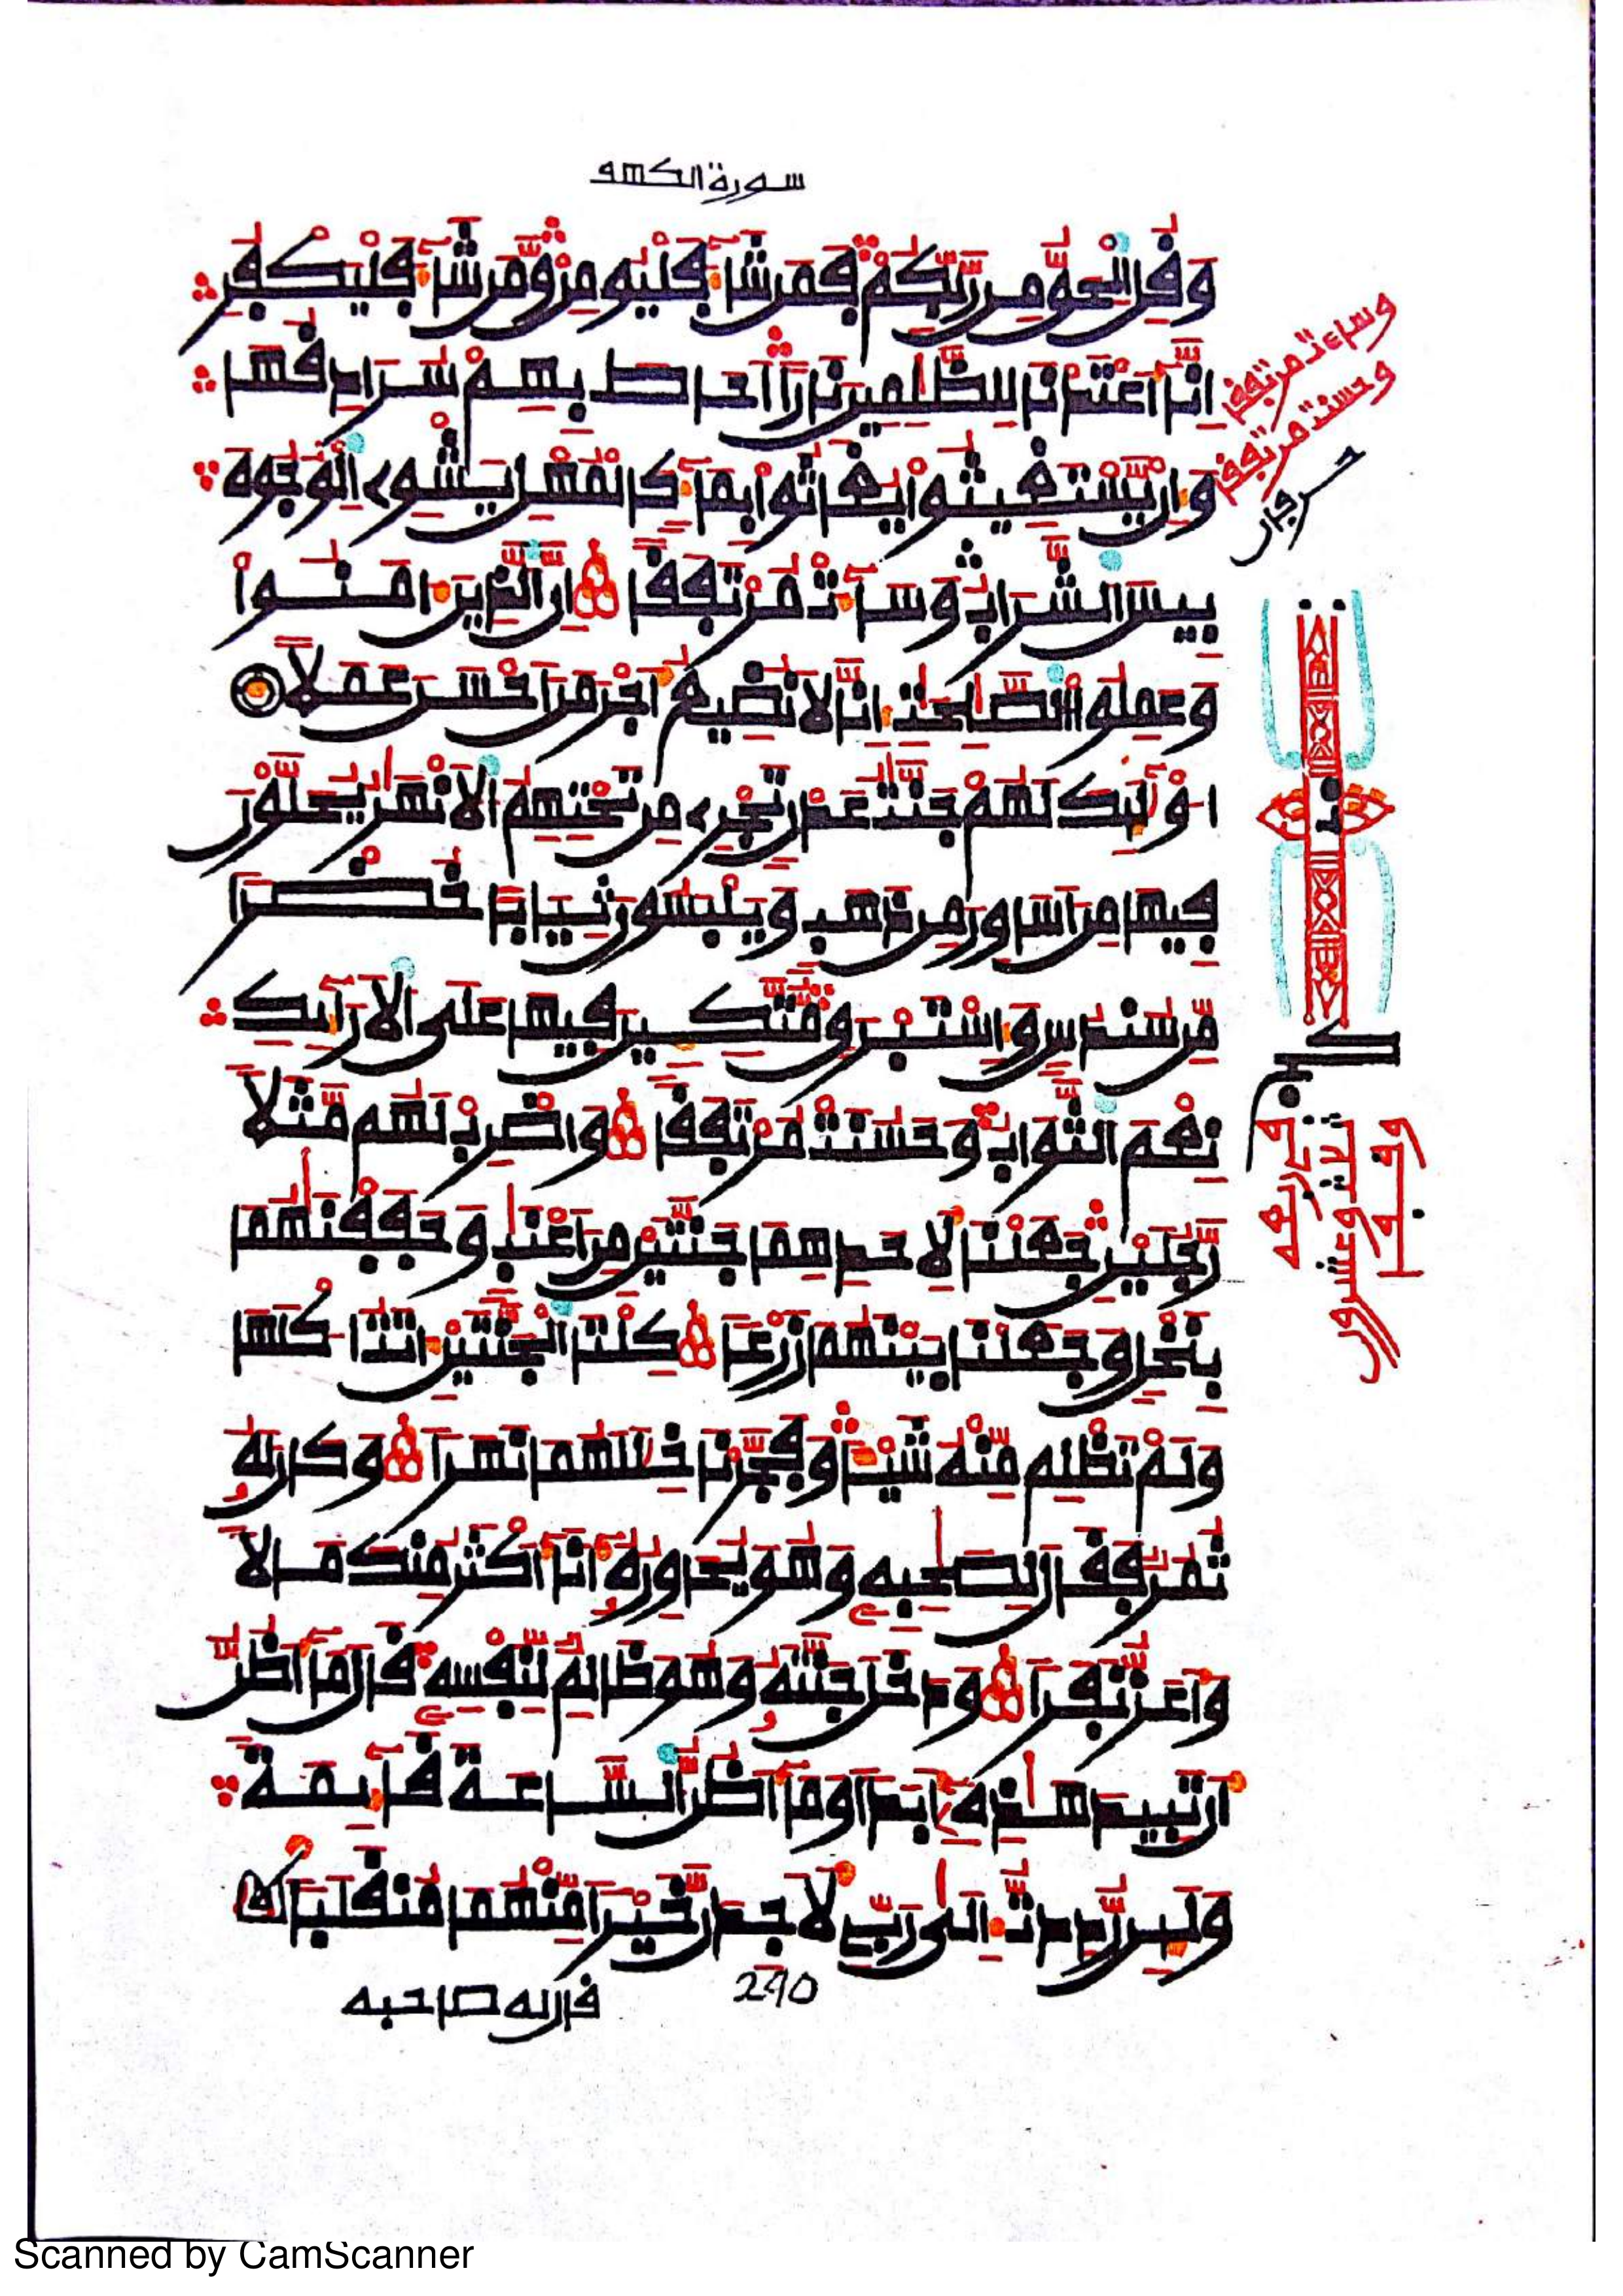 سورة الكهف
وقل الحق من ربكم فمن شآ فليومن ومن شآ فليكفر
انآ اعتدنا للظلمين نارا احاط بهم سرادقها
وان يستغيثوا يغاثوا بمآ كالمهل يشوى الوجوه
بيس الشراب وسآت مرتفقا ان الذين امنوا
وعملوا الصلحت انا لا نضيع اجر من احسن عملا
اولٓيك لهم جنت عدن تجرى من تحتهم الانهر يحلون
فيها من اساور من ذهب ويلبسون ثيابا خضرا
من سندس واستبرق متكين فيها على الارآيك
نعم الثواب وحسنت مرتفقا واضرب لهم مثلا
رجلين جعلنا لاحدهما جنتين من اعنب وحففنهما
بنخل وجعلنا بينهما زرعا كلتا الجنتين اتت اكلها
ولم تظلم منه شيا وفجرنا خللهما نهرا وكان له
ثمر فقال لصحبه وهو يحاوره انا اكثر منك مالا
واعز نفرا ودخل جنته وهو ظالم لنفسه قال مآ اظن
ان تبيد هذه ابدا ومآ اظن الساعة قآيمة
ولين رددت الى ربى لاجدن خيرا منهما منقلبا
قال له صاحبه
290
وساءت مرتفقا
وحسنت مرتفقا
Scanned by CamScanner